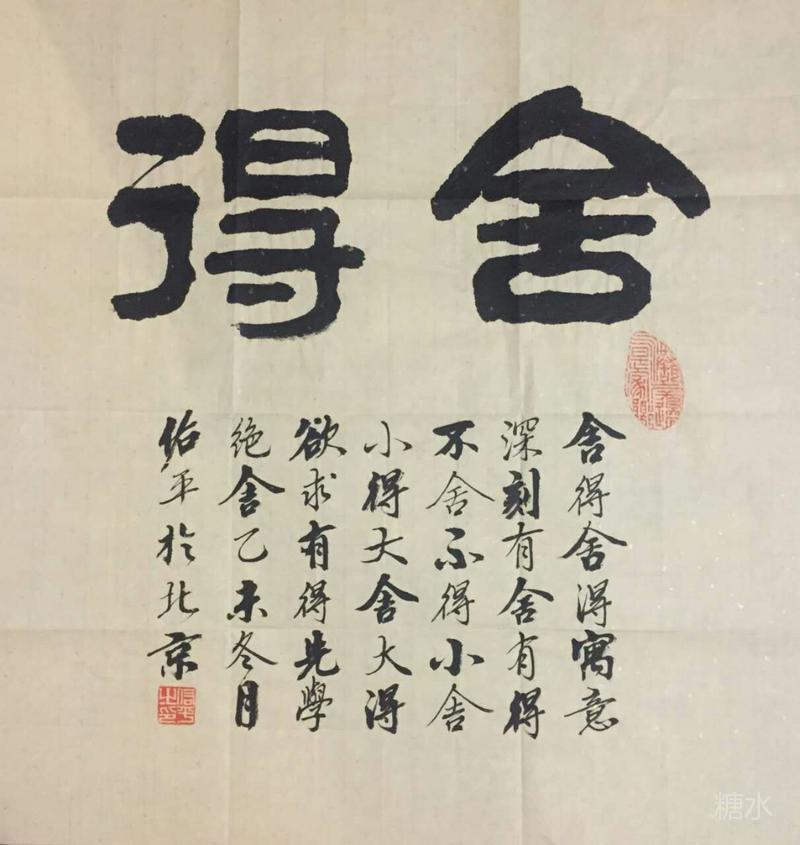 舍得
舍得舍得寓意
深刻有舍有得
不舍不得小舍
小得大舍大得
欲求有得先學
绝舍乙未冬月
佑平於北京
糖水